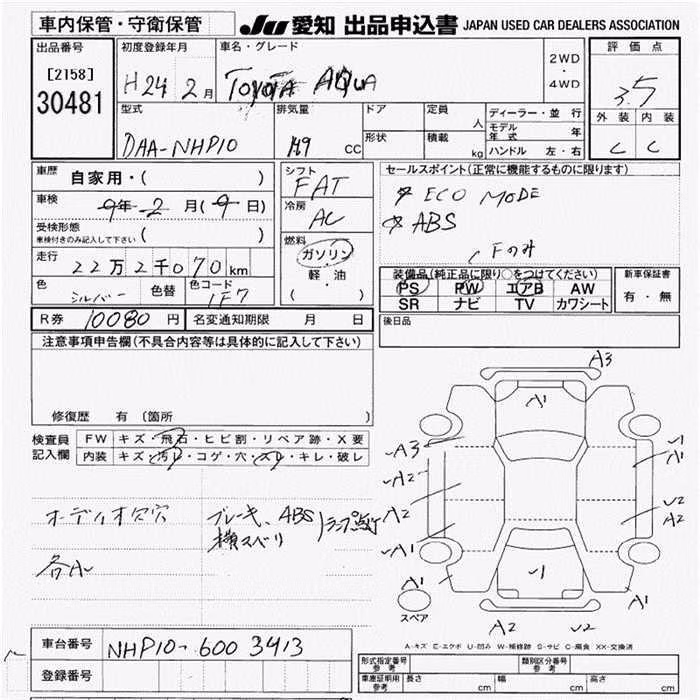 車内保管・守衛保管
JU 愛知 出品申込書 JAPAN USED CAR DEALERS ASSOCIATION
出品番号
[2158]
30481
初度登録年月
H24 2月
車名・グレード
TOYOTA AQUA
2WD
・
4WD
評価点
3.5
外装 内装
C C
型式
DAA-NHP10
排気量
149 CC
ドア
形状
定員
人
積載
kg
ディーラー・並行
モデル年式 年
ハンドル 左・右
車歴
自家用・( )
車検
9年 2月(9日)
受検形態
車検付きのみ記入して下さい ( )
走行
22万2千070km
色
シルバー
色替
色コード
1F7
シフト
FAT
冷房
AC
燃料
ガソリン
軽・油
( ・ )
セールスポイント(正常に機能するものに限ります)
ECO MODE
ABS
Fのみ
装備品(純正品に限り○をつけてください)
PS PW エアB AW
SR ナビ TV カワシート
新車保証書
有・無
R券 10080円
名変通知期限 月 日
後日品
注意事項申告欄(不具合内容等は具体的に記入して下さい)
修復歴 有(箇所
検査員記入欄
FW キズ・飛石・ヒビ割・リペア跡・X要
内装 キズ・汚レ・コゲ・穴・スレ・キレ・破レ
オーディオ穴
ブレーキ、ABS
横スベリ
ランプ点灯
各A1
A3
A1
A3
A2
A2
A1
A1
1
A1
U2
A2
A1
U1
A1
スペア
A2 U2
A-キズ E-エクボ U-凹み W-補修跡 S-サビ C-腐食 XX-交換済
車台番号
NHP10-6003413
登録番号
形式指定番号
参考
類別区分番号
参考
車庫証明用
参考
長さ cm
幅 cm
高さ cm